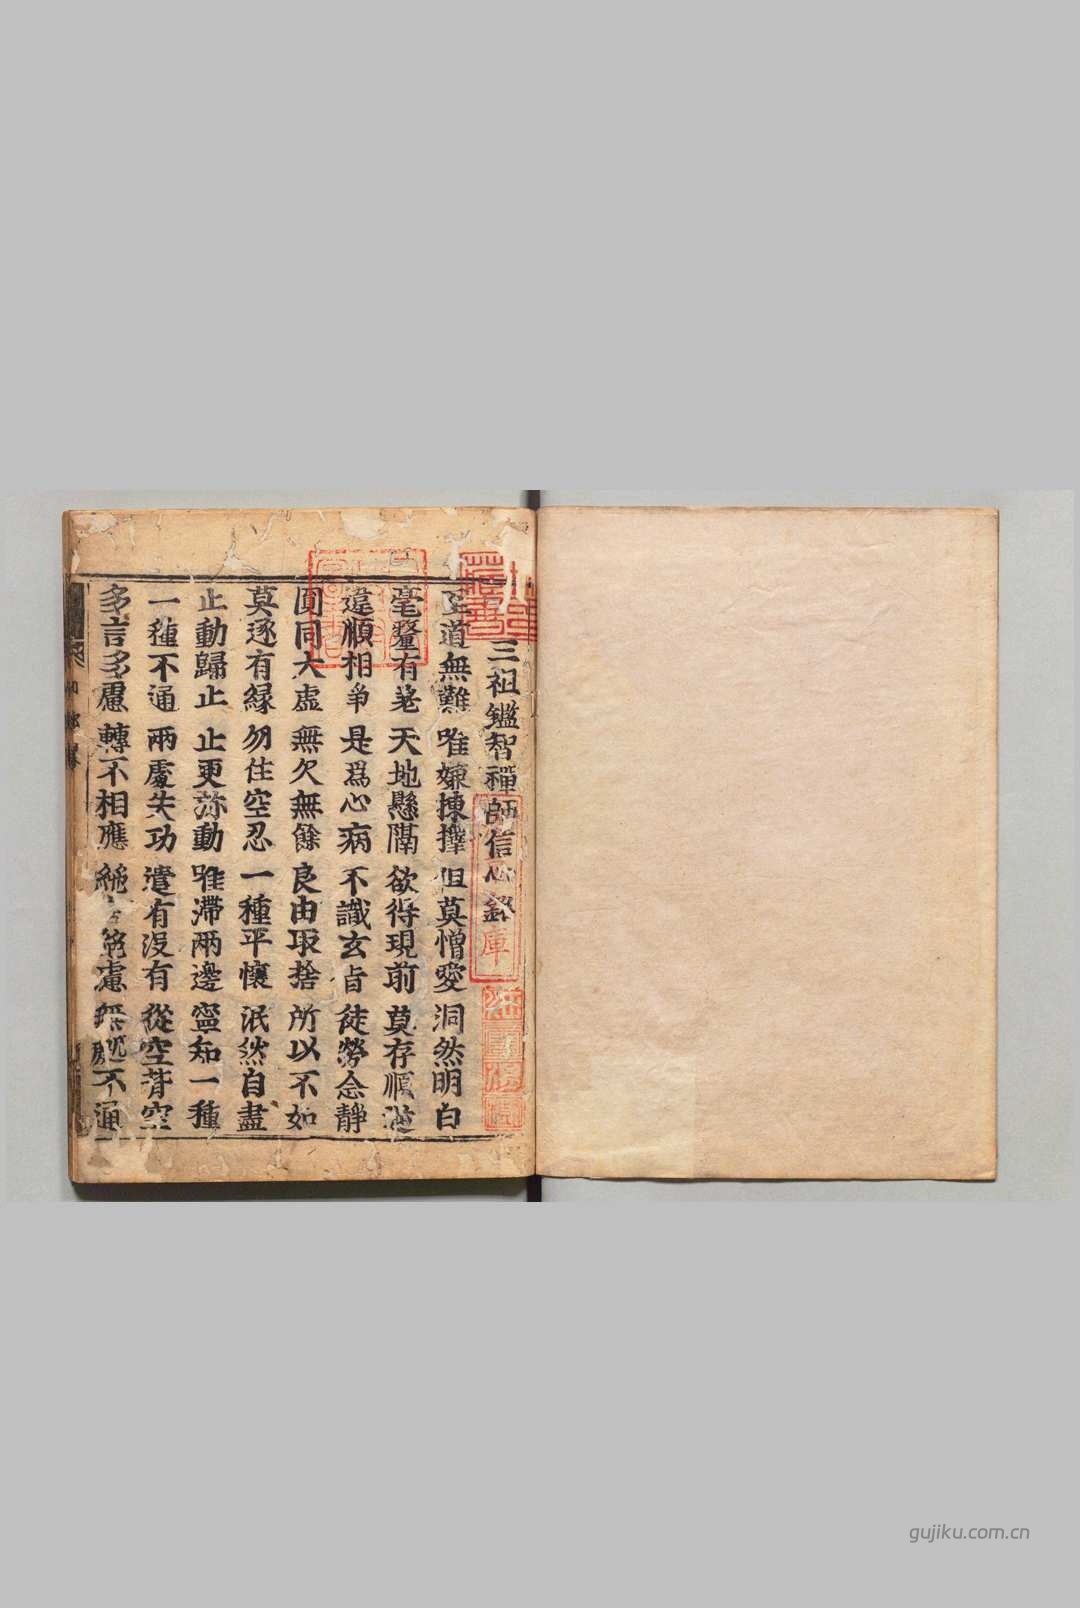 三祖鑑智禪師信心銘
至道無難 唯嫌揀擇 但莫憎愛 洞然明白
毫釐有差 天地懸隔 欲得現前 莫存順逆
違順相爭 是爲心病 不識玄旨 徒勞念靜
圓同大虛 無欠無餘 良由取捨 所以不如
莫逐有緣 勿住空忍 一種平懷 泯然自盡
止動歸止 止更弥動 唯滯兩邊 寧知一種
一種不通 兩處失功 遣有沒有 從空背空
多言多慮 轉不相應 絕言絕慮 無處不通
庫
gujiku.com.cn